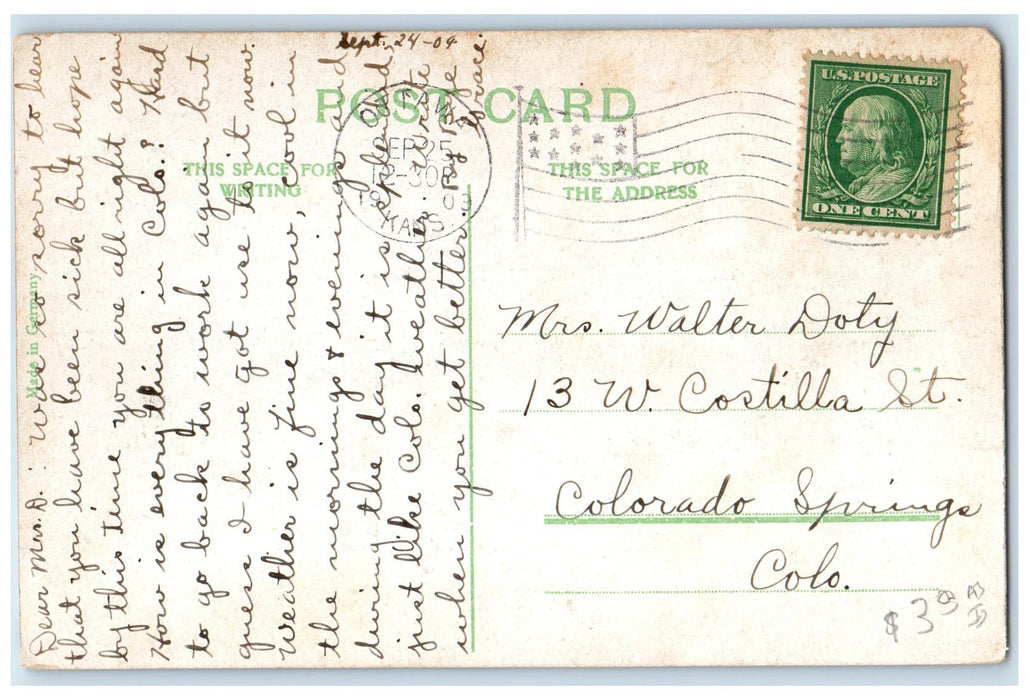 Sept. 24-09
Dear Mrs. D. : Was so sorry to hear
that you have been sick but hope
by this time you are all right again
How is every thing in Colo.? Hard
to go back to work again but
guess I have got use to it now.
Weather is fine now, cool in
the mornings & evenings and
during the day it is splendid
just like Colo. weather. Write
when you get better. Bye bye
Grace
POST CARD
THIS SPACE FOR
WRITING
THIS SPACE FOR
THE ADDRESS
Made in Germany
OTTAWA
SEP 25
KANS.
U.S. POSTAGE
ONE CENT
Mrs. Walter Doty
13 W. Costilla St.
Colorado Springs
Colo.
$3.00